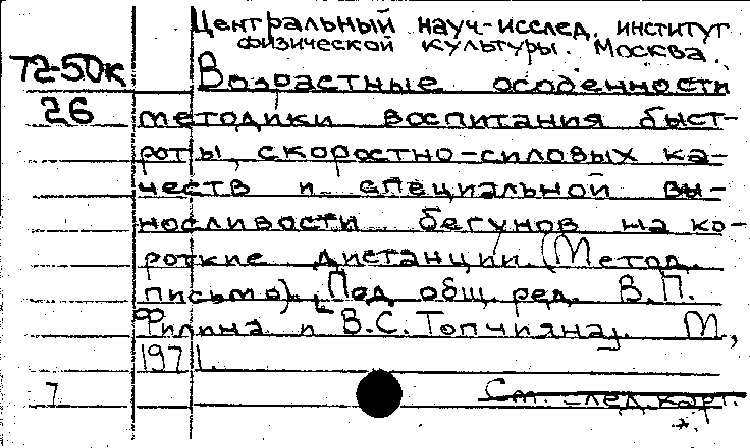 Центральный науч-исслед. институт
физической культуры. Москва.
72-50к Возрастные особенности
26 методики воспитания быст-
роты, скоростно-силовых ка-
честв и специальной вы-
носливости бегунов на ко-
роткие дистанции. (Метод.
письмо). [Под общ. ред. В.П.
Филина и В.С. Топчияна]. М.,
1971.
7 См. след. карт.